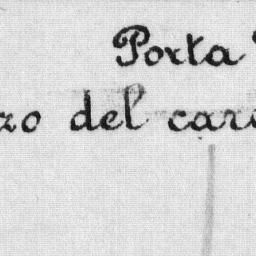 Porta
zo del car